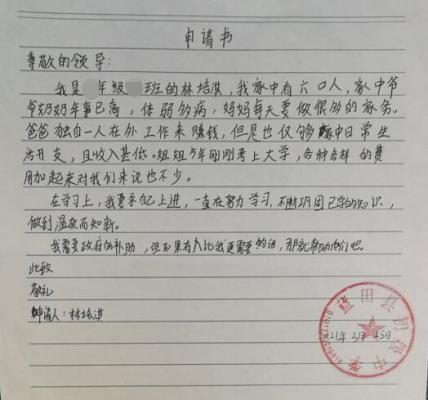 申请书
尊敬的领导:
我是 年级 班的林培淇，我家中有六口人，家中爷
爷奶奶年事已高，体弱多病，妈妈每天要做很多的家务。
爸爸独自一人在外工作来赚钱，但是也仅够家中日常生
活开支，且收入甚低。姐姐今年刚刚考上大学，各种各样的费
用加起来对我们来说也不少。
在学习上，我要求自己上进，一直在努力学习，不断巩固已学的知识，
做到温故而知新。
我需要政府的补助，但如果有人比我更需要的话，那就帮助他们吧。
此致
敬礼
申请人：林培淇
蓝田县初级中学
21年3月25日